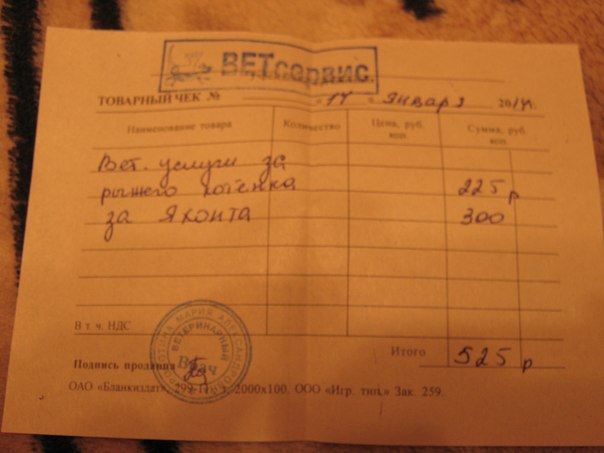 ВЕТсервис.
ТОВАРНЫЙ ЧЕК № " 17 " января 2014г.
Наименование товара Количество Цена, руб. коп. Сумма, руб. коп.
Вет. услуги за
рыжего котёнка 225 р
за Яхонта 300
В т. ч. НДС
Итого 525 р
Подпись продавца
ВЕТЕРИНАРНЫЙ
Врач
МАРИЯ АЛЕКСАНДРОВНА
ОАО «Бланкиздат», 2000х100. ООО «Игр. тип.» Зак. 259.